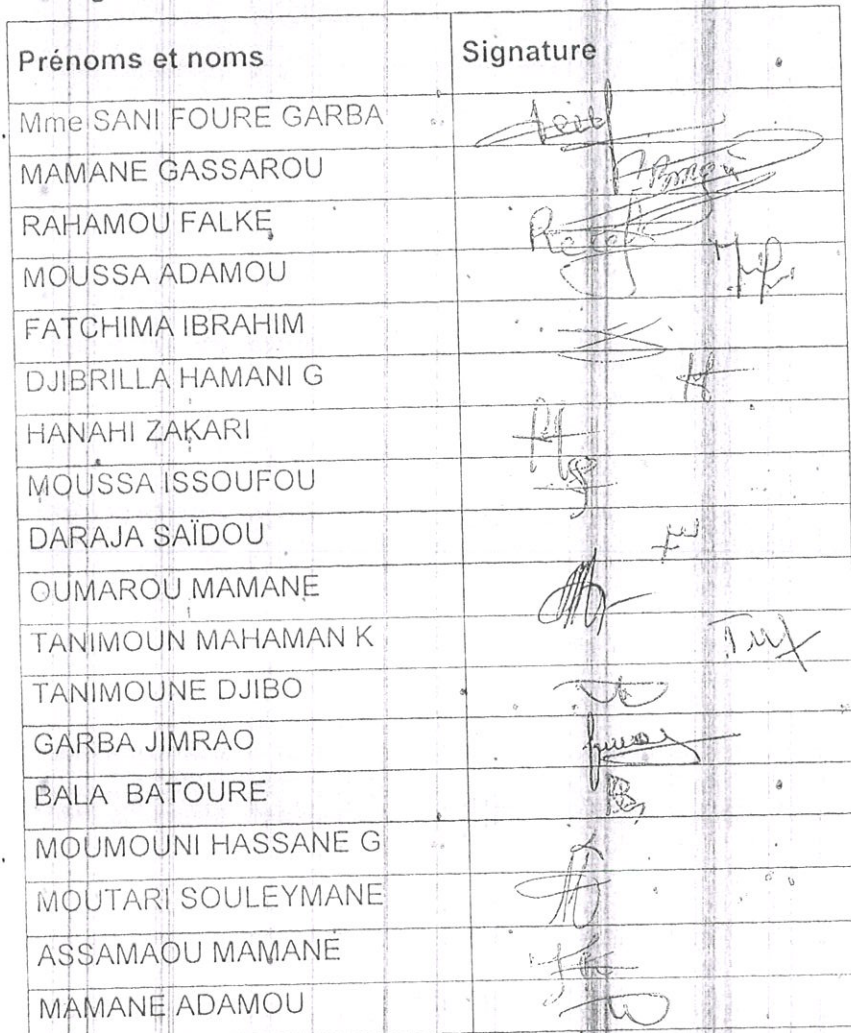 Prénoms et noms Signature
Mme SANI FOURE GARBA
MAMANE GASSAROU
RAHAMOU FALKE
MOUSSA ADAMOU
FATCHIMA IBRAHIM
DJIBRILLA HAMANI G
HANAHI ZAKARI
MOUSSA ISSOUFOU
DARAJA SAÏDOU
OUMAROU MAMANE
TANIMOUN MAHAMAN K
TANIMOUNE DJIBO
GARBA JIMRAO
BALA BATOURE
MOUMOUNI HASSANE G
MOUTARI SOULEYMANE
ASSAMAOU MAMANE
MAMANE ADAMOU